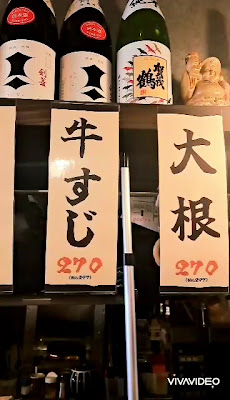 賀茂鶴
牛すじ
270
(税込297)
大根
270
(税込297)
VIVAVIDEO